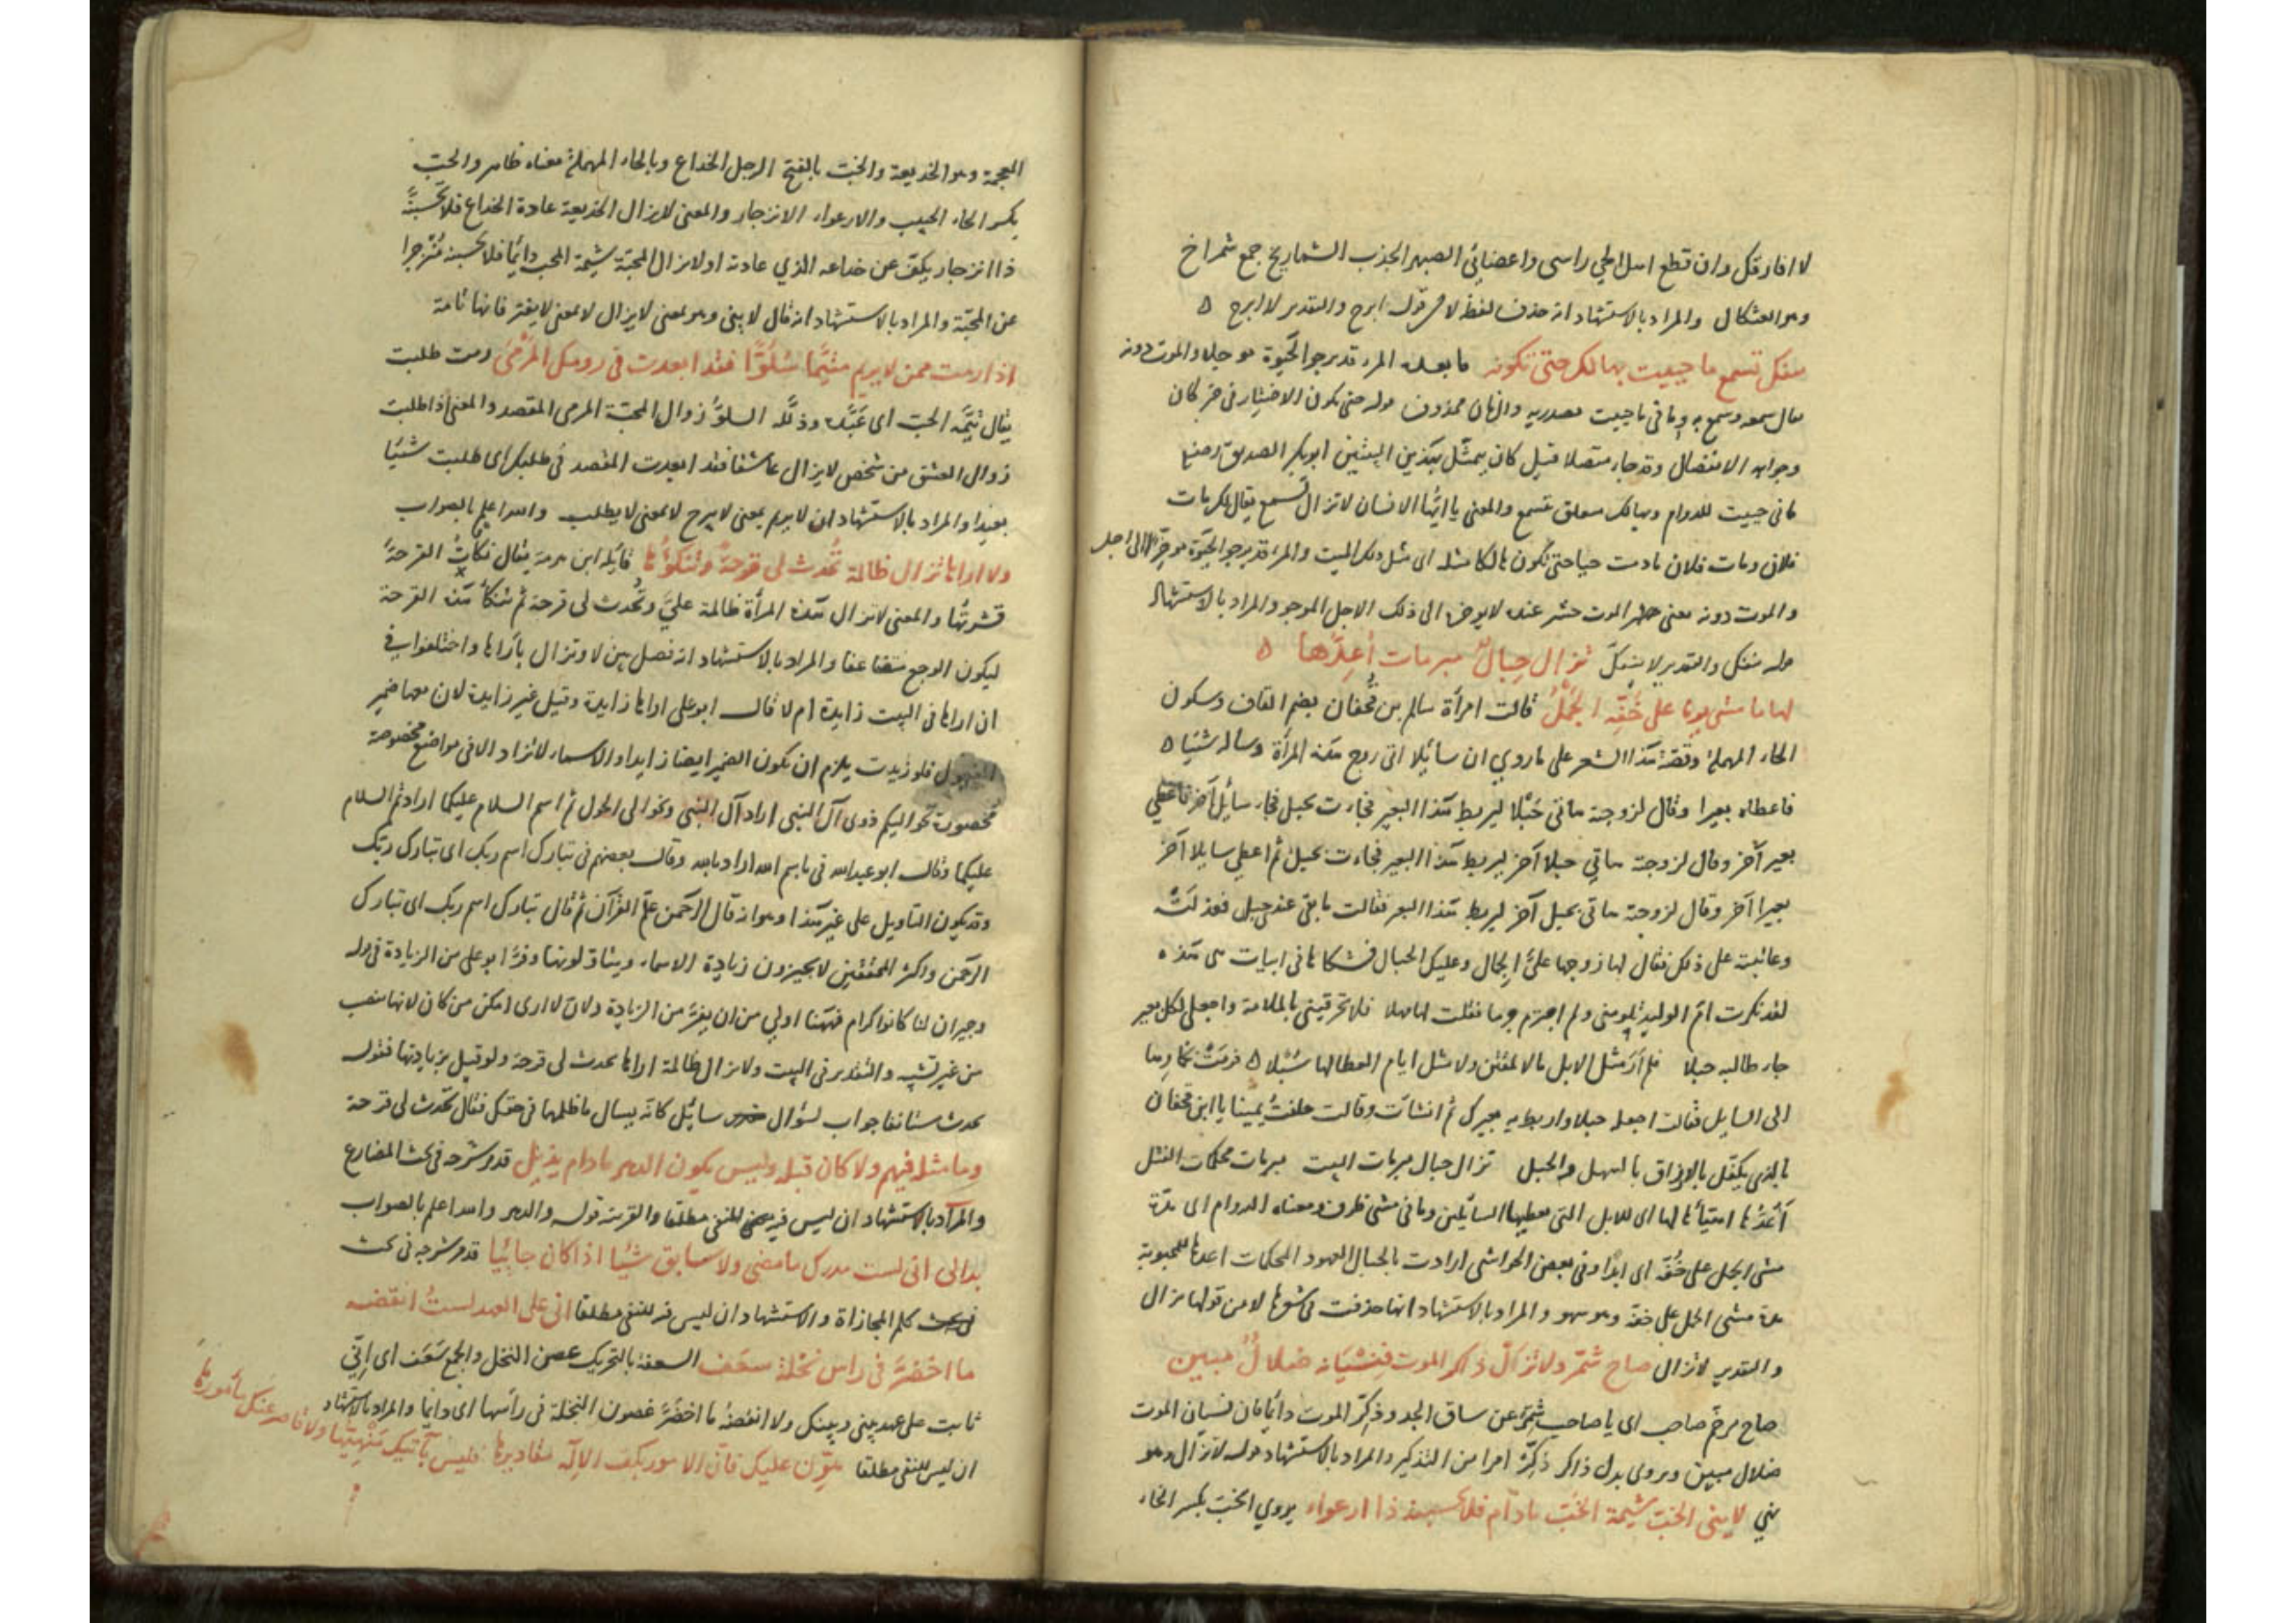 لا افارقك وان قطع اهل الحي راسي واعضائي الصبر الجذب الشماريخ جمع شمراخ
وهو العثكال والمراد بالاستشهاد انه حذف لفظ لا من قوله ابرح والتقدير لا ابرح ه
تنفك تسمع ما حييت بهالك حتى تكونه ما بعده المرء قد يرجو الحيوة مؤجلا والموت دونه
يقال سمعه وسمع به وما في ما حييت مصدرية والزمان محذوف قوله حتى تكون الاختيار في خبر كان
وجوابه الانفصال وقد جاء متصلا قيل كان يتمثل بهذين البيتين ابوبكر الصديق رضي
ما في حييت للدوام وبهالك متعلق تسمع والمعنى يا ايها الانسان لا تزال تسمع يقال لك مات
فلان ومات فلان ما دمت حيا حتى تكون هالكا مثله اي مثل ذلك الميت والمرء قد يرجو الحيوة مؤخرا الى اجل
والموت دونه معنى الموت عنده لا يؤخر الى ذلك الاجل الموجو والمراد بالاستشهاد
قوله تنفك والتقدير لا ينفك تزال حبال مبرمات أعدها ه
لها ما مشى يوما على خفه الجمل قالت امرأة سالم بن قحفان بضم القاف وسكون
الحاء المهملة وقصة هذا الشعر على ما روي ان سائلا اتى ربع هذه المرأة وسأله شيئا ه
فاعطاه بعيرا وقال لزوجته هاتي حبلا ليربط هذا البعير فجاءت بحبل فجاء سائل آخر فاعطي
بعير آخر وقال لزوجته هاتي حبلا آخر ليربط هذا البعير فجاءت بحبل ثم اعطي سايلا آخر
بعيرا آخر وقال لزوجته هاتي بحبل آخر ليربط هذا البعير فقالت ما بقي عندي حبل فعذلته
وعاتبته على ذلك فقال لها زوجها علي الجمال وعليك الحبال فشكاها في ابيات هي هذه
لقد بكرت ام الوليد تلومني ولم اجترم جرما فقلت لها مهلا فلا تحرقيني بالملامة واجعلي لكل بعير
جاء طالبه حبلا فلم أر مثل الابل مالا لمقتن ولا مثل ايام العطا لها سبلا ه فرمت خمارها
الى السايل فقالت اجعله حبلا واربط به بعيرك ثم انشأت وقالت حلفت يمينا يا ابن قحفان
بالذي يكفل بالارزاق بالسهل والجبل تزال حبال مبرمات البيت مبرمات محكمات الفتل
أعدها اهيأها لها اي للابل التي يعطيها السائلين وما في مشى ظرف ومعناه الدوام اي مدة
مشي الجمل على خفه اي ابدا وفي بعض الحواشي ارادت بالحبال العهود المحكمات اعدها للمحبوبة
مدة مشي الجمل على خفه وهو سهو والمراد بالاستشهاد انها حذفت في شعرها لا من قولها تزال
والتقدير لا تزال صاح شمر ولا تزال ذاكر الموت فنسيانه ضلال مبين
صاح مرخم صاحب اي يا صاحب شمر عن ساق الجد وذكر الموت دائما فان نسيان الموت
ضلال مبين ويروى بدل ذاكر ذكر امرا من التذكير والمراد بالاستشهاد قوله لا تزال وهو
نهي لا يني الخب شيمة الخب ما دام فلا تحسبنه ذا ارعواء يروي الخب بكسر الخاء
المعجمة وهو الخديعة والخب بالفتح الرجل الخداع وبالحاء المهملة معناه ظاهر والحب
بكسر الحاء الحبيب والارعواء الانزجار والمعنى لا يزال الخديعة عادة الخداع فلا تحسبنه
ذا انزجار يكف عن خداعه الذي عادته او لا يزال المحبة شيمة المحب دائما فلا تحسبنه منزجرا
عن المحبة والمراد بالاستشهاد انه قال لا يني وهو بمعنى لا يزال لا بمعنى لا يفتر فانها تامة
اذا رمت ممن لا يريم متيما سلوا فقد ابعدت في رومك المرمى رمت طلبت
يقال تيمه الحب اي عبده وذلله السلو زوال المحبة المرمى المقصد والمعنى اذا طلبت
زوال العشق من شخص لا يزال عاشقا فقد ابعدت المقصد في طلبك اي طلبت شيئا
بعيدا والمراد بالاستشهاد ان لا يريم بمعنى لا يبرح لا بمعنى لا يطلب والله اعلم بالصواب
ولا اراها تزال ظالمة تحدث لي قرحة وتنكؤها قائله ابن هرمة يقال نكأت القرحة
قشرتها والمعنى لا تزال هذه المرأة ظالمة علي وتحدث لي قرحة ثم تنكأ هذه القرحة
ليكون الوجع متضاعفا والمراد بالاستشهاد انه فصل بين لا وتزال بأراها واختلفوا في
ان اراها في البيت زايدة ام لا قال ابو علي اراها زايدة وقيل غير زايدة لان معها ضمير
المفعول فلو زيدت يلزم ان يكون الضمير ايضا زايدا والاسماء لا تزاد الا في مواضع مخصوصة
مخصوصة نحو اليكم ذوي آل النبي اراد آل النبي ونحو الى الحول ثم اسم السلام عليكما اراد ثم السلام
عليكما وقال ابو عبد الله في باسم الله اراد بالله وقال بعضهم في تبارك اسم ربك اي تبارك ربك
وقد يكون التاويل على غير هذا وهو انه قال الرحمن علم القرآن ثم قال تبارك اسم ربك اي تبارك
الرحمن واكثر المحققين لا يجيزون زيادة الاسماء ويتاولونها وفر ابو علي من الزيادة في قوله
وجيران لنا كانوا كرام فههنا اولى من ان يفر من الزيادة ولان لا ارى امكن من كان لانها تنصب
من غير تشبيه والتقدير في البيت ولا تزال ظالمة اراها تحدث لي قرحة ولو قيل بزيادتها فقوله
تحدث مستانفا جواب لسؤال سائل كانه يسال ما ظلمها في حقك فقال تحدث لي قرحة
وما مثله فيهم ولا كان قبله وليس يكون الدهر ما دام يذبل قد مر شرحه في بحث المضارع
والمراد بالاستشهاد ان ليس فيه للنفي مطلقا والقرينة قوله والدهر والله اعلم بالصواب
بدا لي اني لست مدرك ما مضى ولا سابق شيئا اذا كان جائيا قد مر شرحه في بحث
كلم المجازاة والاستشهاد ان ليس فيه للنفي مطلقا اني على العهد لست انقضه
ما اخضر في راس نخلة سعف السعفة بالتحريك غصن النخل والجمع سعف اي اني
ثابت على عهد بيني وبينك ولا انقضه ما اخضر غصون النخلة في رأسها اي دائما والمراد بالاستشهاد
ان ليس للنفي مطلقا هون عليك فان الامور بكف الاله مقاديرها فليس بآتيك منهيها ولا قاصر عنك مأمورها